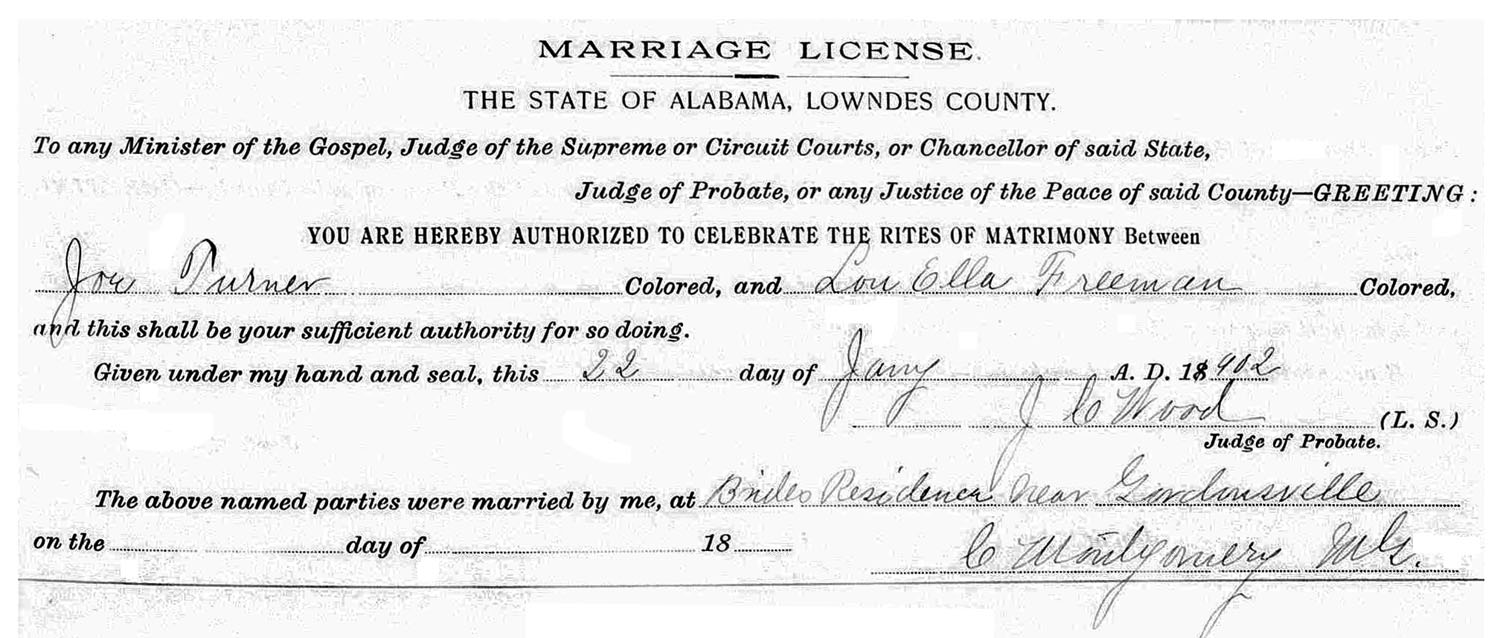 MARRIAGE LICENSE.
THE STATE OF ALABAMA, LOWNDES COUNTY.
To any Minister of the Gospel, Judge of the Supreme or Circuit Courts, or Chancellor of said State,
Judge of Probate, or any Justice of the Peace of said County—GREETING:
YOU ARE HEREBY AUTHORIZED TO CELEBRATE THE RITES OF MATRIMONY Between
Joe Turner Colored, and Lou Ella Freeman Colored,
and this shall be your sufficient authority for so doing.
Given under my hand and seal, this 22 day of Jany A. D. 1902
J C Wood (L. S.)
Judge of Probate.
The above named parties were married by me, at Brides Residence near Gordonsville
on the day of 18
C Montgomery M.G.